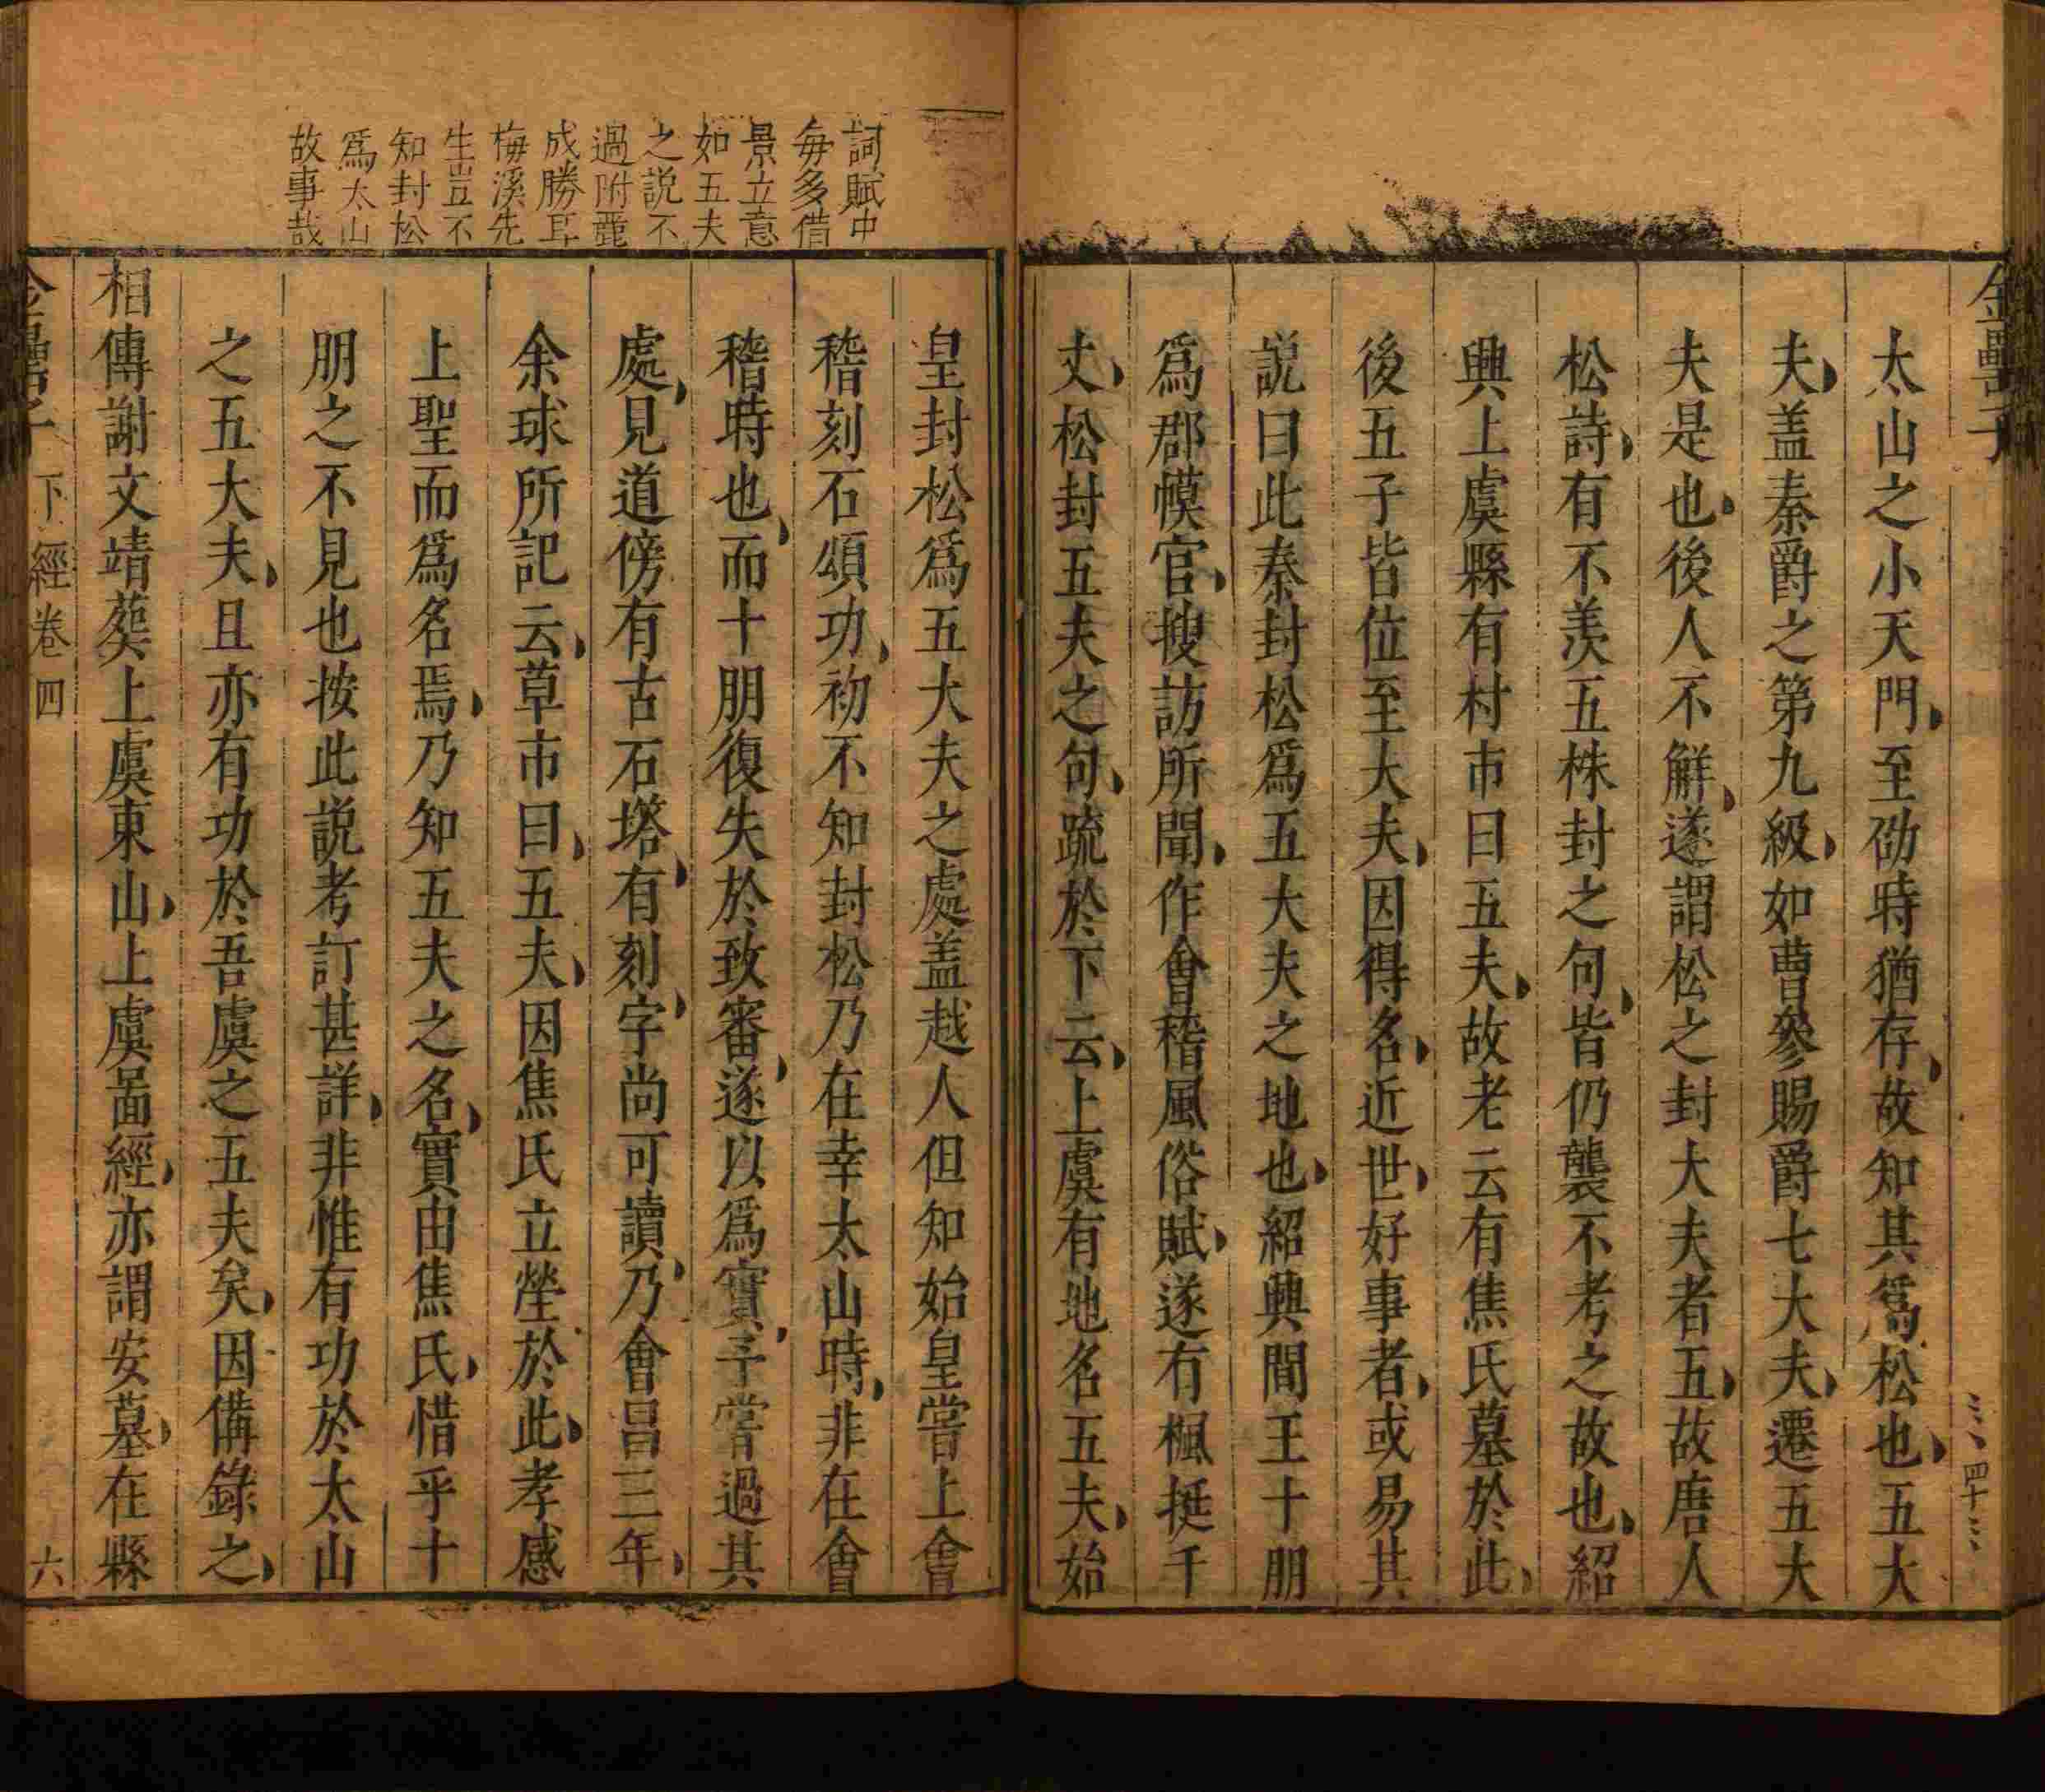 金罍子
太山之小天門至劭時猶存故知其爲松也五大
夫盖秦爵之第九級如曹參賜爵七大夫遷五大
夫是也後人不解遂謂松之封大夫者五故唐人
松詩有不羨五株封之句皆仍襲不考之故也紹
興上虞縣有村市曰五夫故老云有焦氏墓於此
後五子皆位至大夫因得名近世好事者或易其
説曰此秦封松爲五大夫之地也紹興間王十朋
爲郡幙官搜訪所聞作會稽風俗賦遂有楓挺千
丈松封五夫之句疏於下云上虞有地名五夫始
詞賦中
毎多借
景立意
如五夫
之説不
過附麗
成勝耳
梅溪先
生豈不
知封松
爲太山
故事哉
皇封松爲五大夫之處盖越人但知始皇嘗上會
稽刻石頌功初不知封松乃在幸太山時非在會
稽時也而十朋復失於致審遂以爲實予嘗過其
處見道傍有古石塔有刻字尚可讀乃會昌三年
余球所記云草市曰五夫因焦氏立塋於此孝感
上聖而爲名焉乃知五夫之名實由焦氏惜乎十
朋之不見也按此説考訂甚詳非惟有功於太山
之五大夫且亦有功於吾虞之五夫矣因備錄之
相傳謝文靖葬上虞東山上虞啚經亦謂安墓在縣
金罍子 下經卷四 六